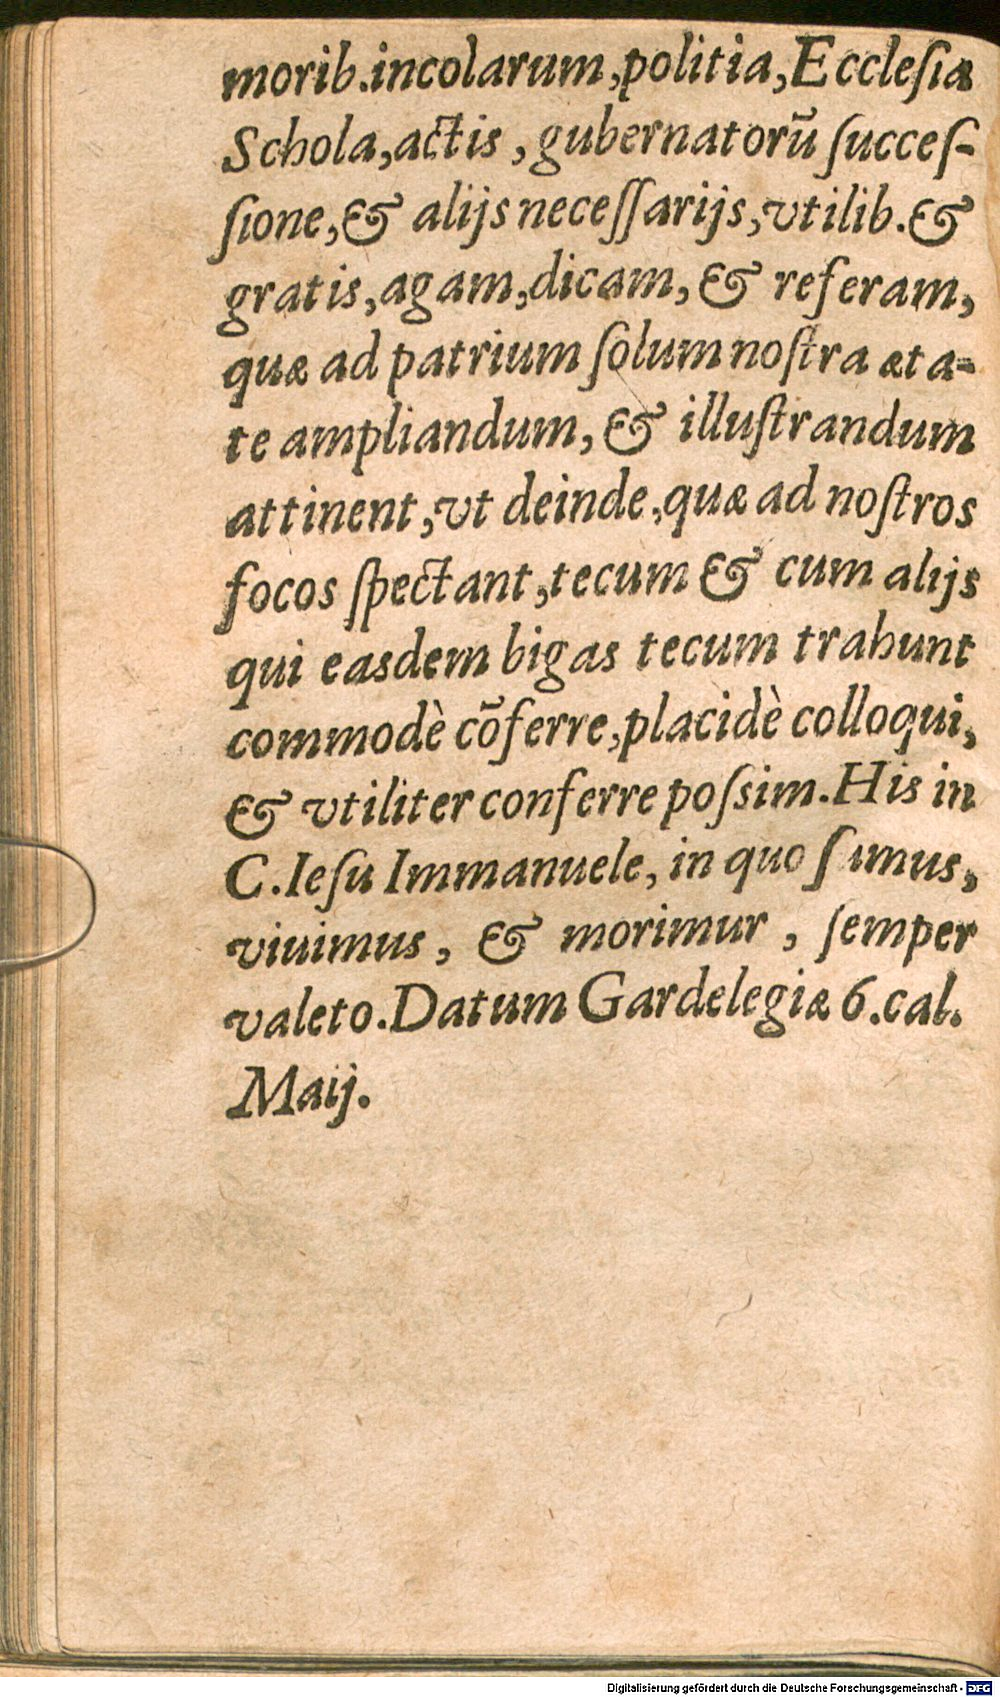 morib.incolarum,politia,Ecclesia
Schola,actis, gubernatorū ſucceſ-
ſione,& alijs neceſſarijs,vtilib.&
gratis,agam,dicam,& referam,
quæ ad patrium ſolum noſtra æta-
te ampliandum,& illuſtrandum
attinent,vt deinde,quæ ad noſtros
focos ſpectant,tecum & cum alijs
qui easdem bigas tecum trahunt
commodè cōferre,placidè colloqui,
& vtiliter conferre poſsim.His in
C.Ieſu Immanuele, in quo ſumus,
viuimus, & morimur, ſemper
valeto.Datum Gardelegiæ 6.cal.
Maij.
Digitalisierung gefördert durch die Deutsche Forschungsgemeinschaft - DFG